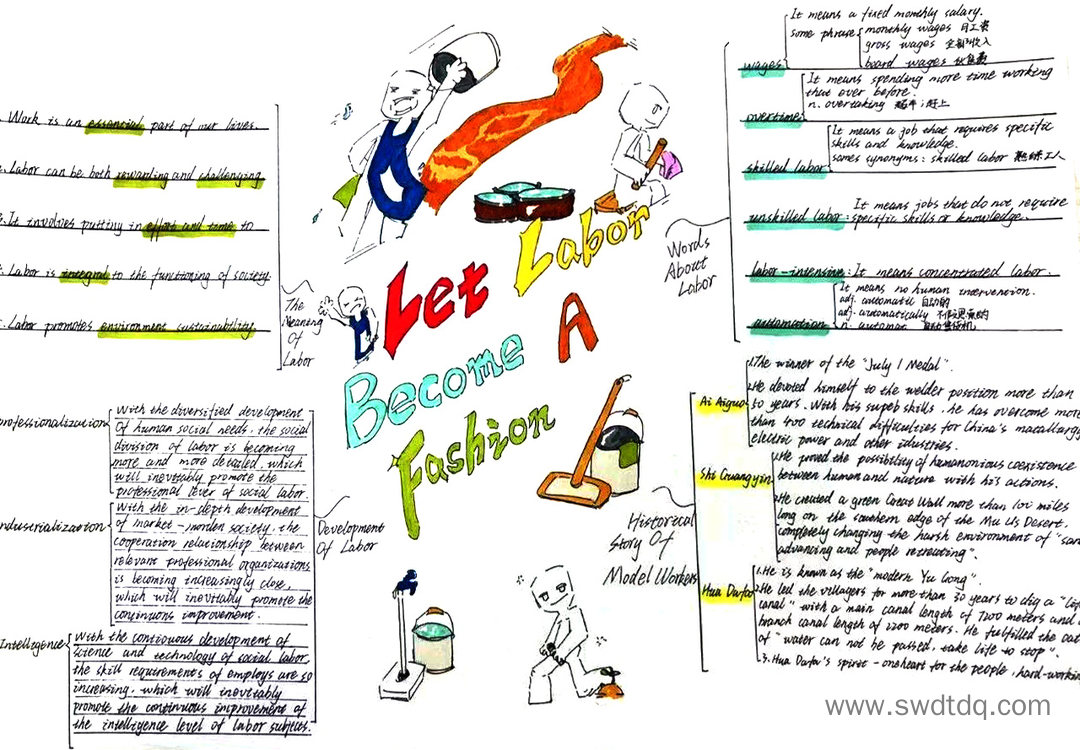 Let
Labor
Become A
Fashion
The
Meaning
Of
Labor
Work is an essencial part of our lives.
Labor can be both rewarding and challenging
It involves putting in effort and time to
Labor is integral to the functioning of society.
Labor promotes environment sustainability
Words
About
Labor
wages
It means a fixed monthly salary.
some phrase
monthly wages 月工资
gross wages 全部收入
board wages
overtime
It means spending more time working
that over before.
n. overtaking
skilled labor
It means a job that requires specific
skills and knowledge.
somes synonyms: skilled labor 熟练工人
unskilled labor: It means jobs that do not require
specific skills or knowledge.
labor-intensive: It means concentrated labor.
automation
It means no human intervention.
adj. automatic 自动的
adj. automatically
n. automat
Development
Of Labor
professionalization
With the diversified development
of human social needs, the social
division of labor is becoming
more and more detailed, which
will inevitably promote the
professional lever of social labor.
industrialization
With the in-depth development
of market-morden society, the
cooperation relationship between
relevant professional organizations
is becoming increasingly close,
which will inevitably promote the
continuous improvement.
Intelligence
With the continuous development of
science and technology of social labor,
the skill requirements of employs are so
increasing, which will inevitably
promote the continuous improvement of
the intelligence level of labor subjects.
Historecal
Story Of
Model Workers
Ai Aiguo
1. The winner of the "July 1 Medal".
2. He devoted himself to the welder position more than
50 years. With his superb skills, he has overcome more
than 400 technical difficulties for China's
electric power and other idustries.
Shi Guangyin
He proved the possibility of humanonious coexistence
between human and nature with his actions.
He created a green Great Wall more than 100 miles
long on the southern edge of the Mu Us Desert,
completely changing the harsh environment of
advancing and people retreating".
Hua Dafa
1. He is known as the "modern Yu Gong".
2. He led the villagers for more than 30 years to dig a
canal" with a main canal length of 7200 meters and
branch canal length of 2200 meters. He fulfilled the
of "water can not be passed, take life to stop".
3. Hua Dafa's spirit - oneheart for the people,
www.swdtdq.com